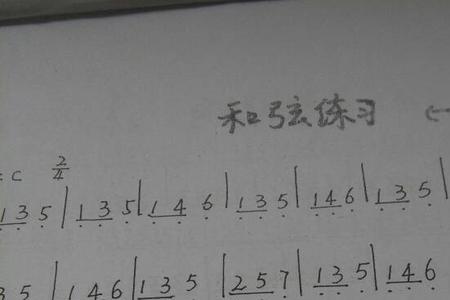 和弦练习
: C 2/4
1 3 5 | 1 3 5 | 1 4 6 | 1 3 5 | 1 4 6 | 1 3 5 |
3 5 | 1 4 6 | 1 3 5 | 2 5 7 | 1 3 5 | 1 4 6